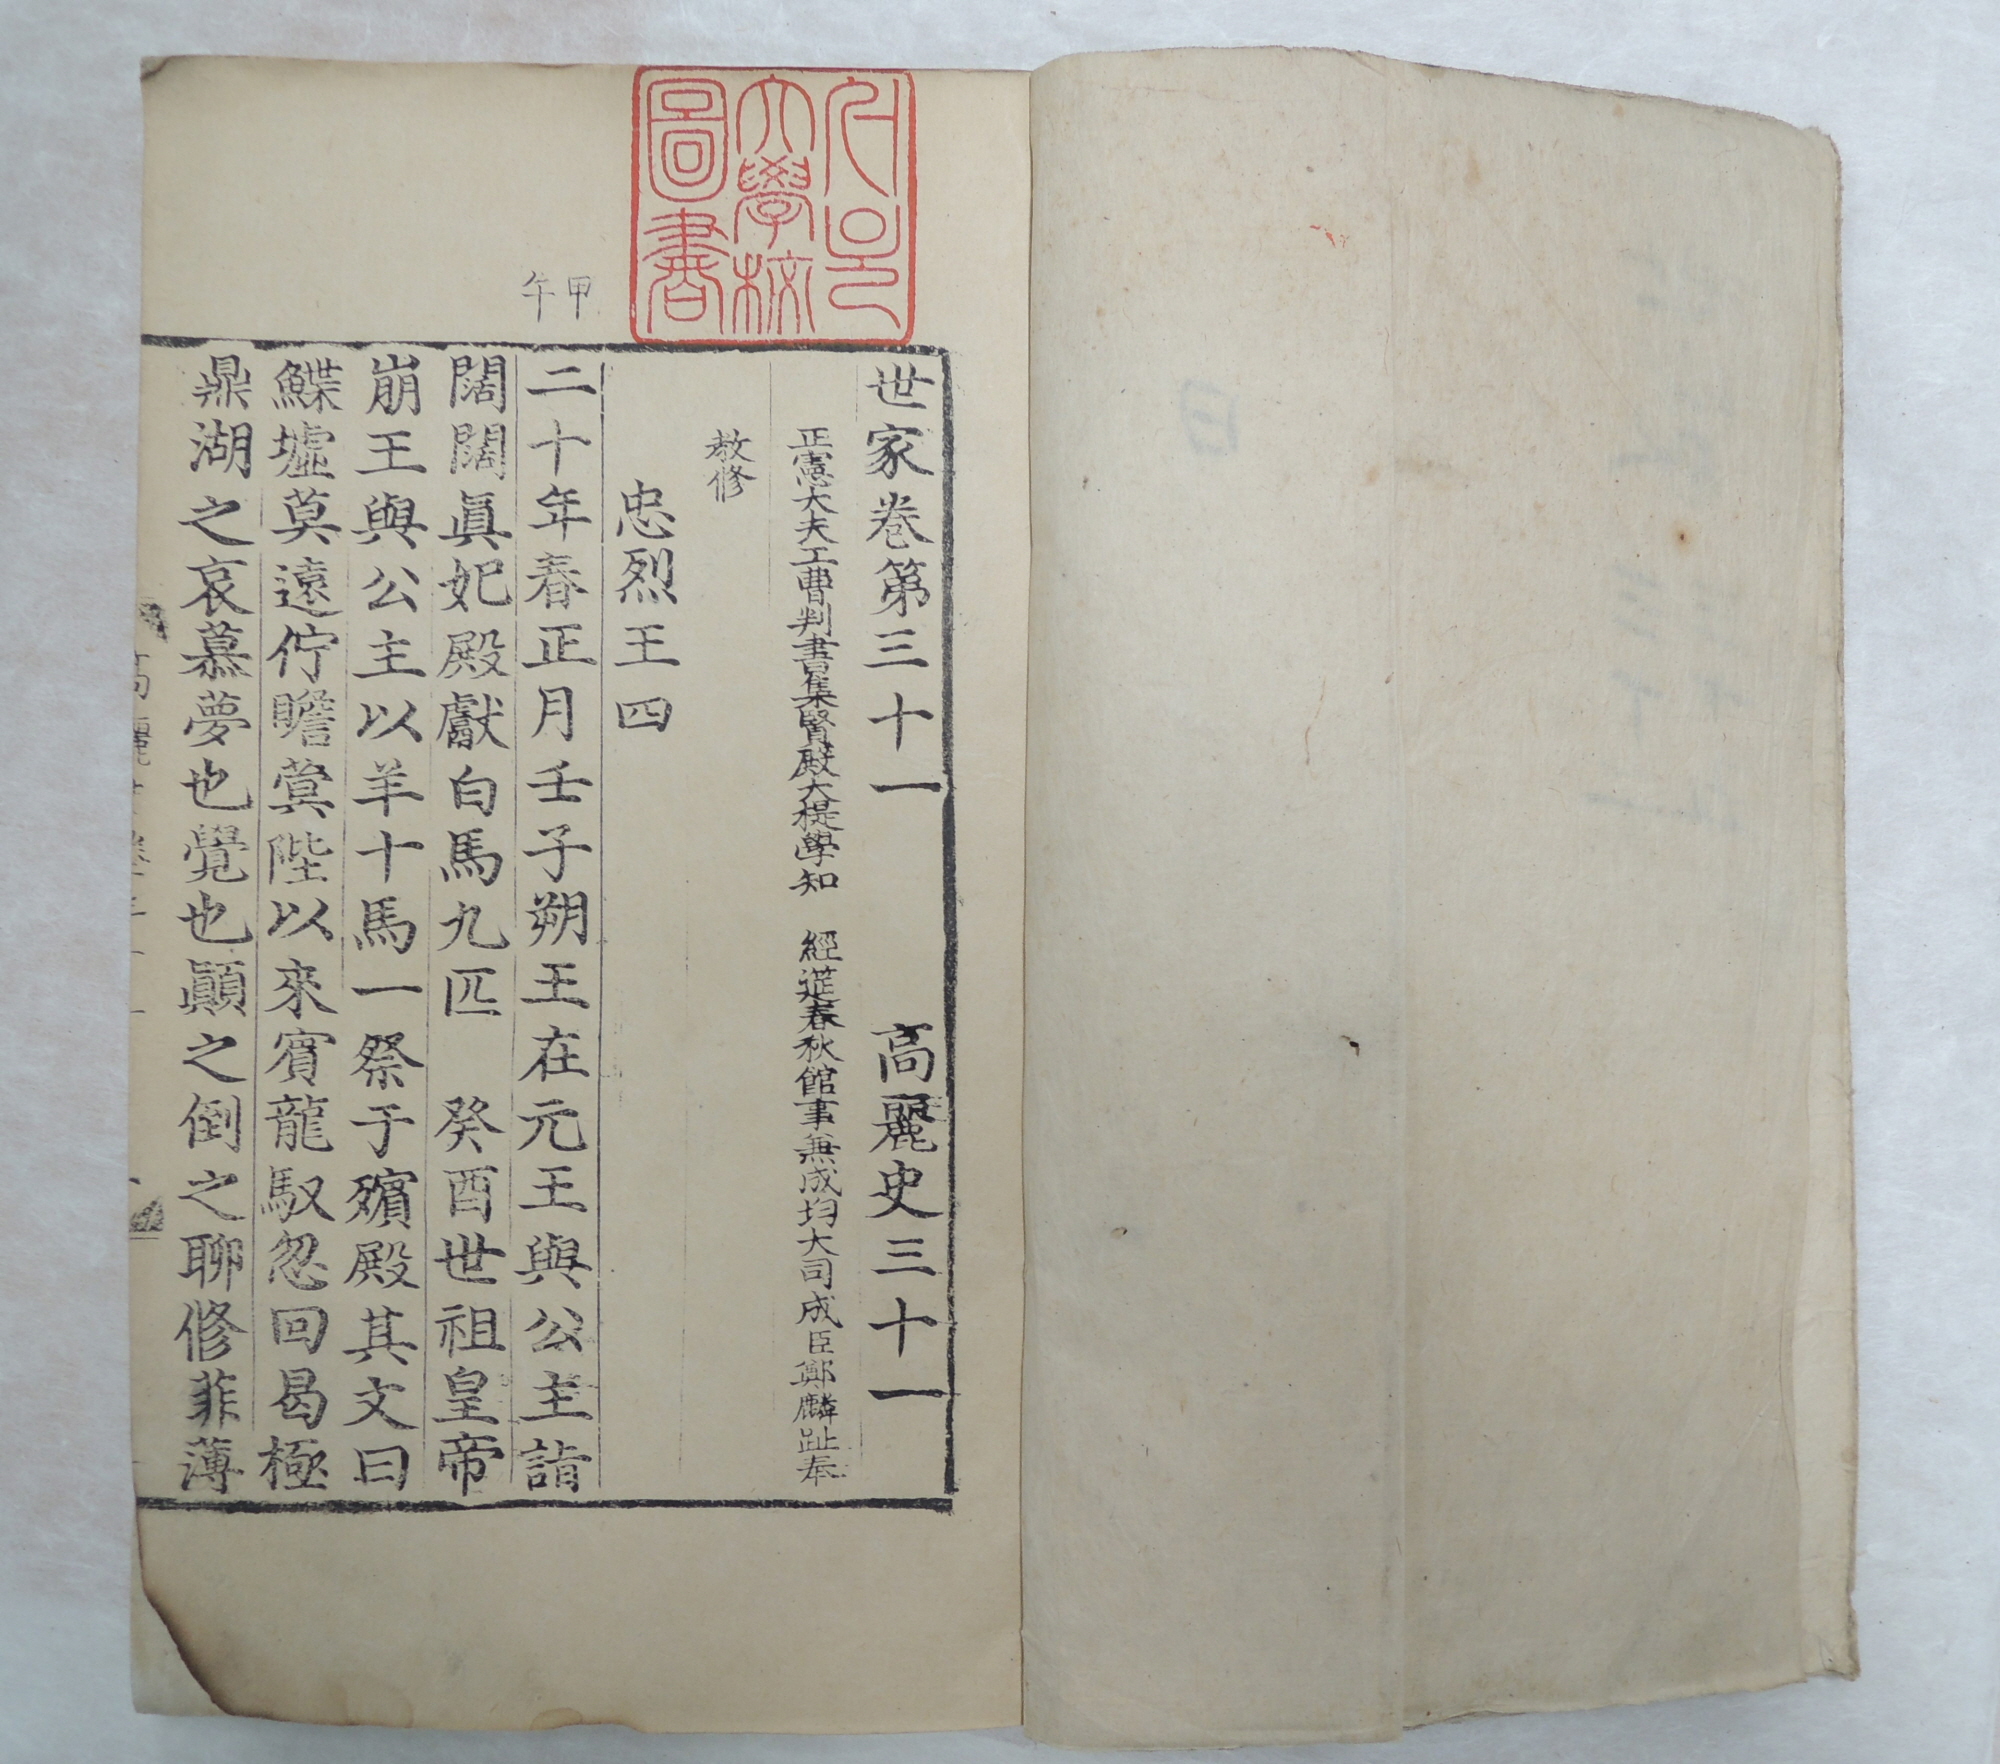 서울
大學校
圖書
世家卷第三十一 高麗史三十一
正憲大夫工曹判書集賢殿大提學知 經筵春秋館事兼成均大司成臣鄭麟趾奉
教修
忠烈王四
甲午
二十年春正月壬子朔王在元王與公主詣
闊闊眞妃殿獻白馬九匹 癸酉世祖皇帝
崩王與公主以羊十馬一祭于殯殿其文曰
鰈墟莫遠佇瞻蓂陛以來賓龍馭忽回曷極
鼎湖之哀慕夢也覺也顚之倒之聊修菲薄